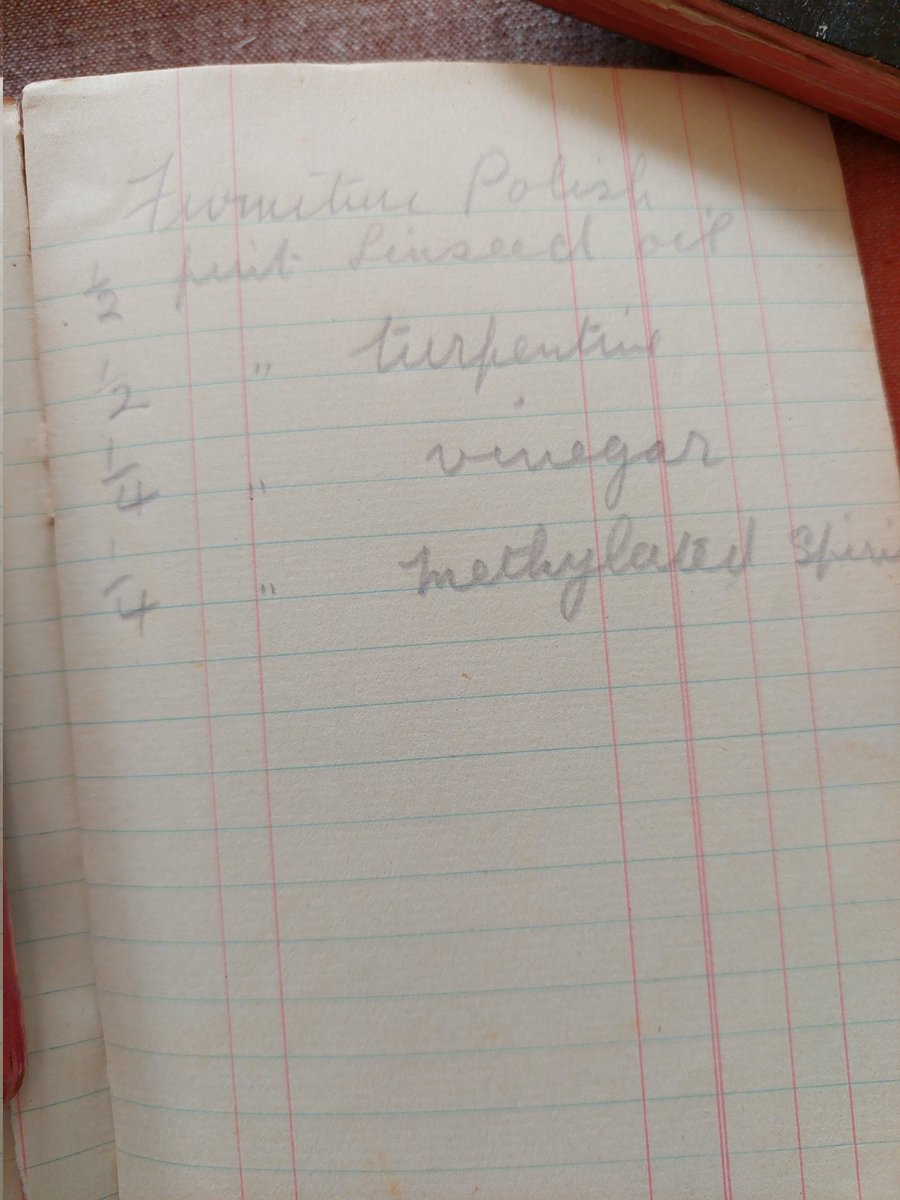 Furniture Polish
1/2 pint Linseed oil
1/2 " turpentine
1/4 " vinegar
1/4 " methylated Spiri